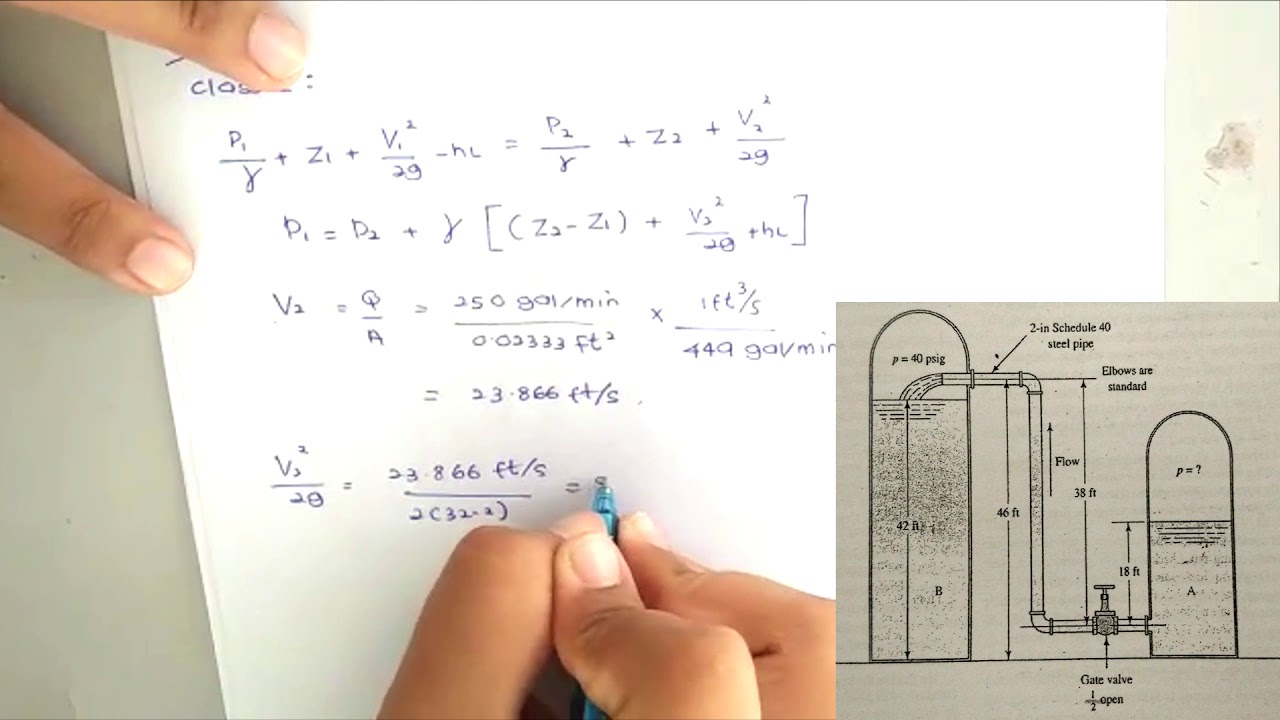 P₁/γ + Z₁ + V₁²/2g - hL = P₂/γ + Z₂ + V₂²/2g
P₁ = P₂ + γ [(Z₂ - Z₁) + V₂²/2g + hL]
V₂ = Q/A = 250 gal/min / 0.02333 ft² × 1ft³/s / 449 gal/min
= 23.866 ft/s.
V₂²/2g = 23.866 ft/s / 2(32.2) =
2-in Schedule 40
steel pipe
p = 40 psig
Elbows are
standard
Flow
p = ?
38 ft
46 ft
42 ft
18 ft
B
A
Gate valve
1/2 open